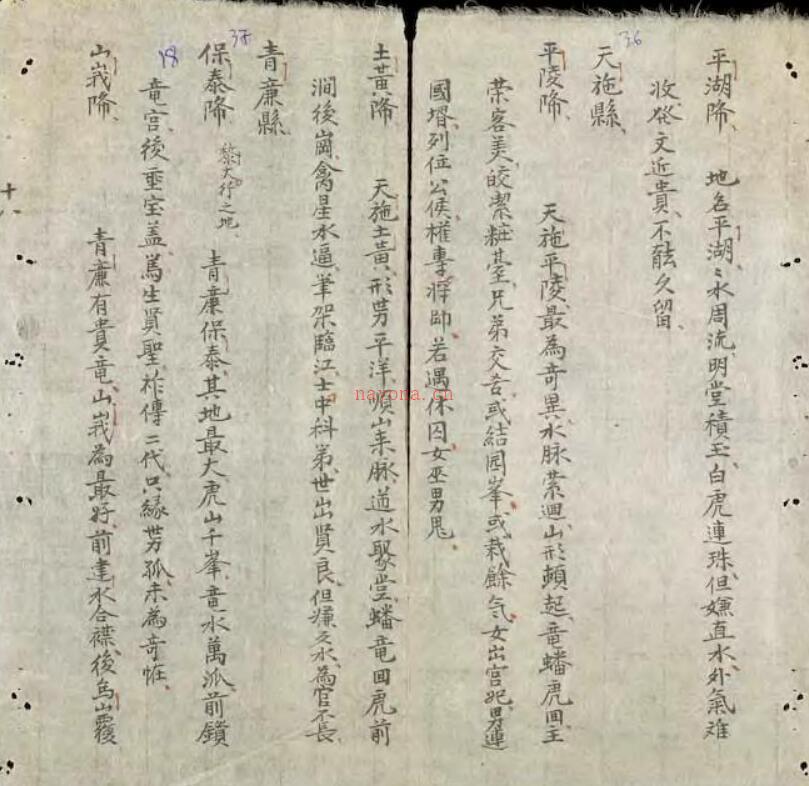 平湖降 地名平湖〻水周流明堂積玉白虎連珠但嫌直水外氣难
收発文近貴不能久留
天施縣
36
平陵降 天施平陵最為奇異水脉縈迴山形頓起竜蟠虎回主
荣客美皎潔粧䑓兄弟交吉或結园峯或栽餘气女出宫妃男連
國壻列位公侯權專將帥若遇休囚女巫男鬼
土黃降 天施土黃形势平洋順山来脉逆水聚堂蟠竜回虎前
澗後崗禽星水逼筆架臨江士中科第世出賢良但嫌之水為官不長
青廉縣
37
保泰降 黎大行之地 青廉保泰其地最大虎山千峯竜水萬派前鎖
竜宫後垂宝盖篤生賢聖祚傳二代只緣势孤未為奇恠
18
山峩降 青廉有貴竜山峩為最好前建水合襟後烏山覆
十八
nayona.cn